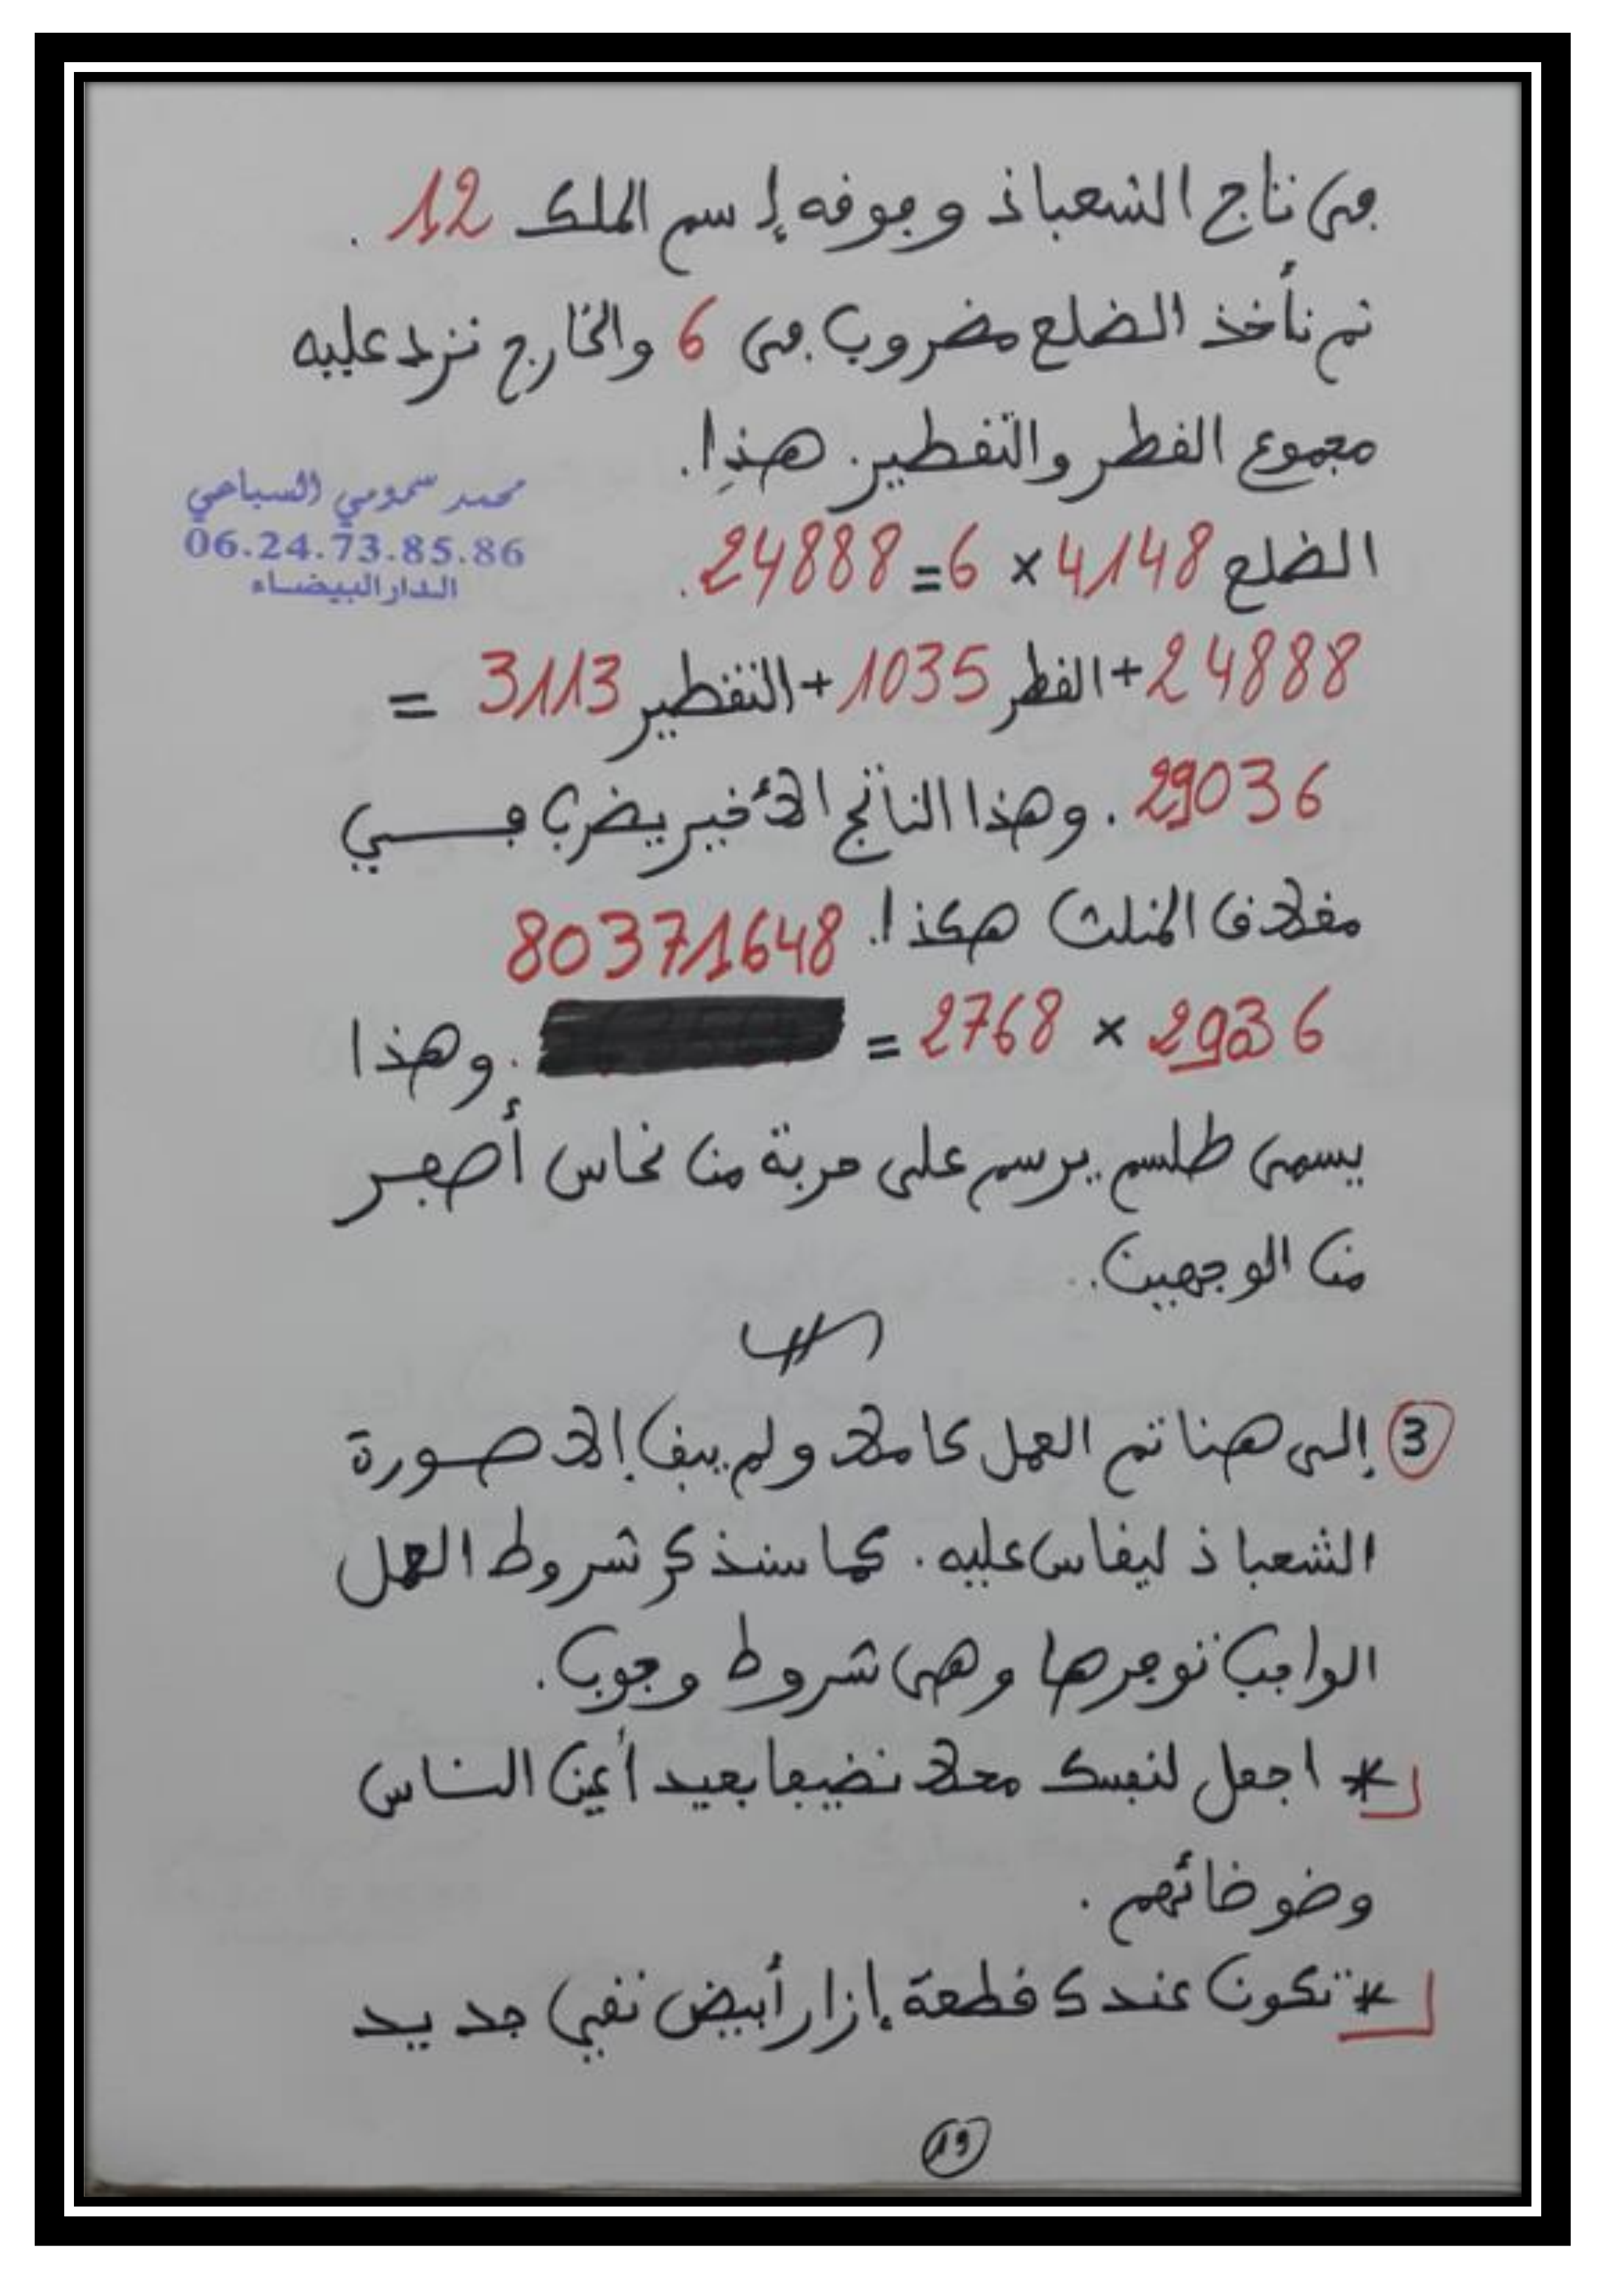 في تاج الشعباذ وجوفه إسم الملك 12 .
تم نأخذ الضلع مضروب في 6 والخارج نزد عليه
مجموع القطر والتقطير. هذا.
محمد سمومي السباعي
06.24.73.85.86
الدار البيضاء
الضلع 4148 × 6 = 24888 .
24888 + القطر 1035 + التقطير 3113 =
29036 . وهذا الناتج الأخير يضرب في
مغلاق المثلث هكذا. 80371648
29036 × 2768 = . وهذا
يسمى طلسم يرسم على حربة من نحاس أصفر
من الوجهين.
3 إلى هنا تم العمل كاملا ولم يبق إلا صورة
الشعباذ ليقاس عليه . كما سنذكر شروط العمل
الواجب توفرها وهي شروط وجوب .
* اجعل لنفسك محلا نضيفا بعيد أعين الناس
وضوضائهم .
* تكون عندك قطعة إزار أبيض نقي جديد
19